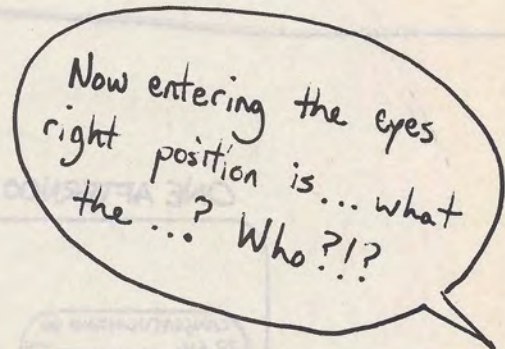 Now entering the eyes
right position is... what
the...? Who?!?